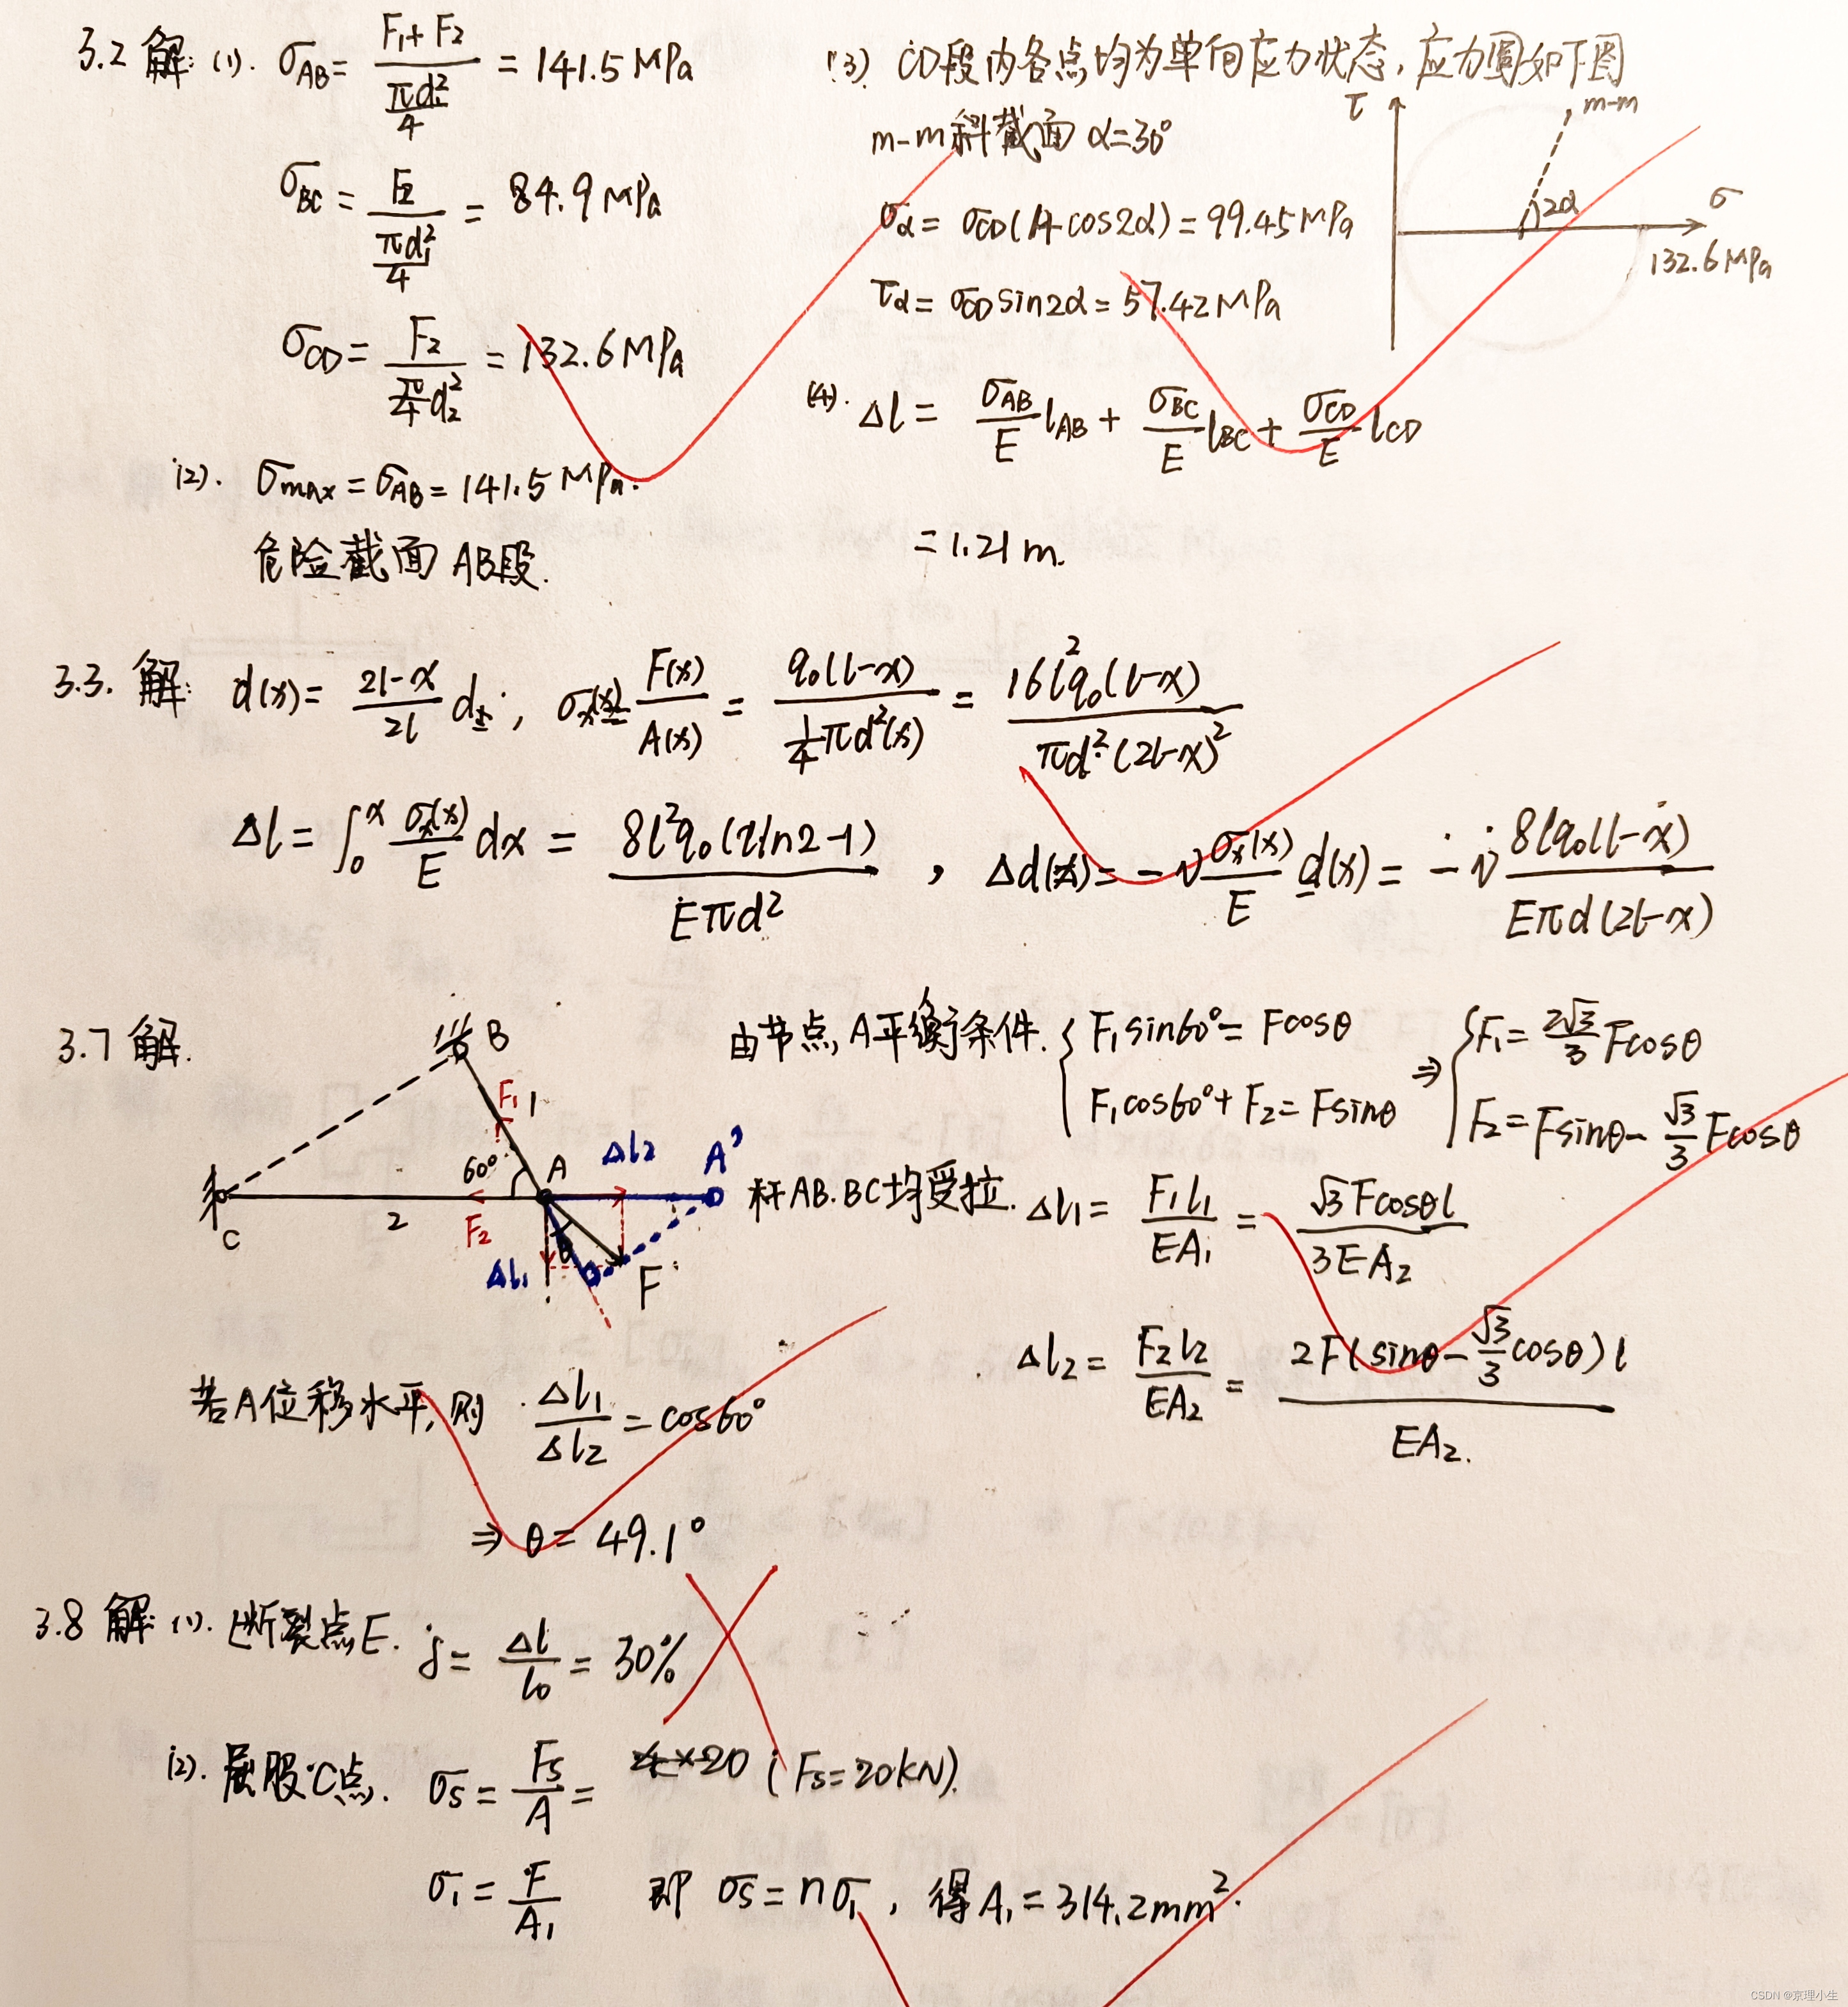 3.2 解: (1). σ_AB = (F₁+F₂)/(πd₁²/4) = 141.5 MPa
σ_BC = F₂/(πd₁²/4) = 84.9 MPa
σ_CD = F₂/(π/4 d₂²) = 132.6 MPa
(2). σmax = σ_AB = 141.5 MPa.
危险截面 AB段.
(3) CD段内各点均为单向应力状态, 应力圆如下图
m-m斜截面 α=30°
σα = σ_CD(1+cos2α) = 99.45 MPa
τα = σ_CD sin2α = 57.42 MPa
τ
m-m
2α
σ
132.6 MPa
(4). Δl = σ_AB/E l_AB + σ_BC/E l_BC + σ_CD/E l_CD
= 1.21 m.
3.3. 解: d(x) = (2l-x)/2l d; σx(x) = F(x)/A(x) = q₀(l-x)/(¼πd²(x)) = 16l²q₀(l-x)/(πd²(2l-x)²)
Δl = ∫₀ˣ σx(x)/E dx = 8l²q₀(2ln2-1)/(Eπd²) , Δd(x) = -ν σx(x)/E d(x) = -ν 8lq₀(l-x)/(Eπd(2l-x))
3.7 解.
B
F₁
1
60°
A
Δl₂
A'
C
2
F₂
Δl₁
θ
F
由节点A平衡条件. { F₁sin60° = Fcosθ
F₁cos60° + F₂ = Fsinθ
⇒ { F₁ = 2√3/3 Fcosθ
F₂ = Fsinθ - √3/3 Fcosθ
杆AB.BC均受拉. Δl₁ = F₁l₁/EA₁ = √3Fcosθl/3EA₂
Δl₂ = F₂l₂/EA₂ = 2F(sinθ - √3/3 cosθ)l/EA₂.
若A位移水平, 则 Δl₁/Δl₂ = cos60°
⇒ θ = 49.1°
3.8 解: (1). 断裂点E. δ = Δl/l₀ = 30%
(2). 屈服C点. σs = Fs/A = 4×20 (Fs=20kN).
σ₁ = F/A₁ 即 σs = nσ₁, 得A₁ = 314.2mm².
CSDN @京理小生